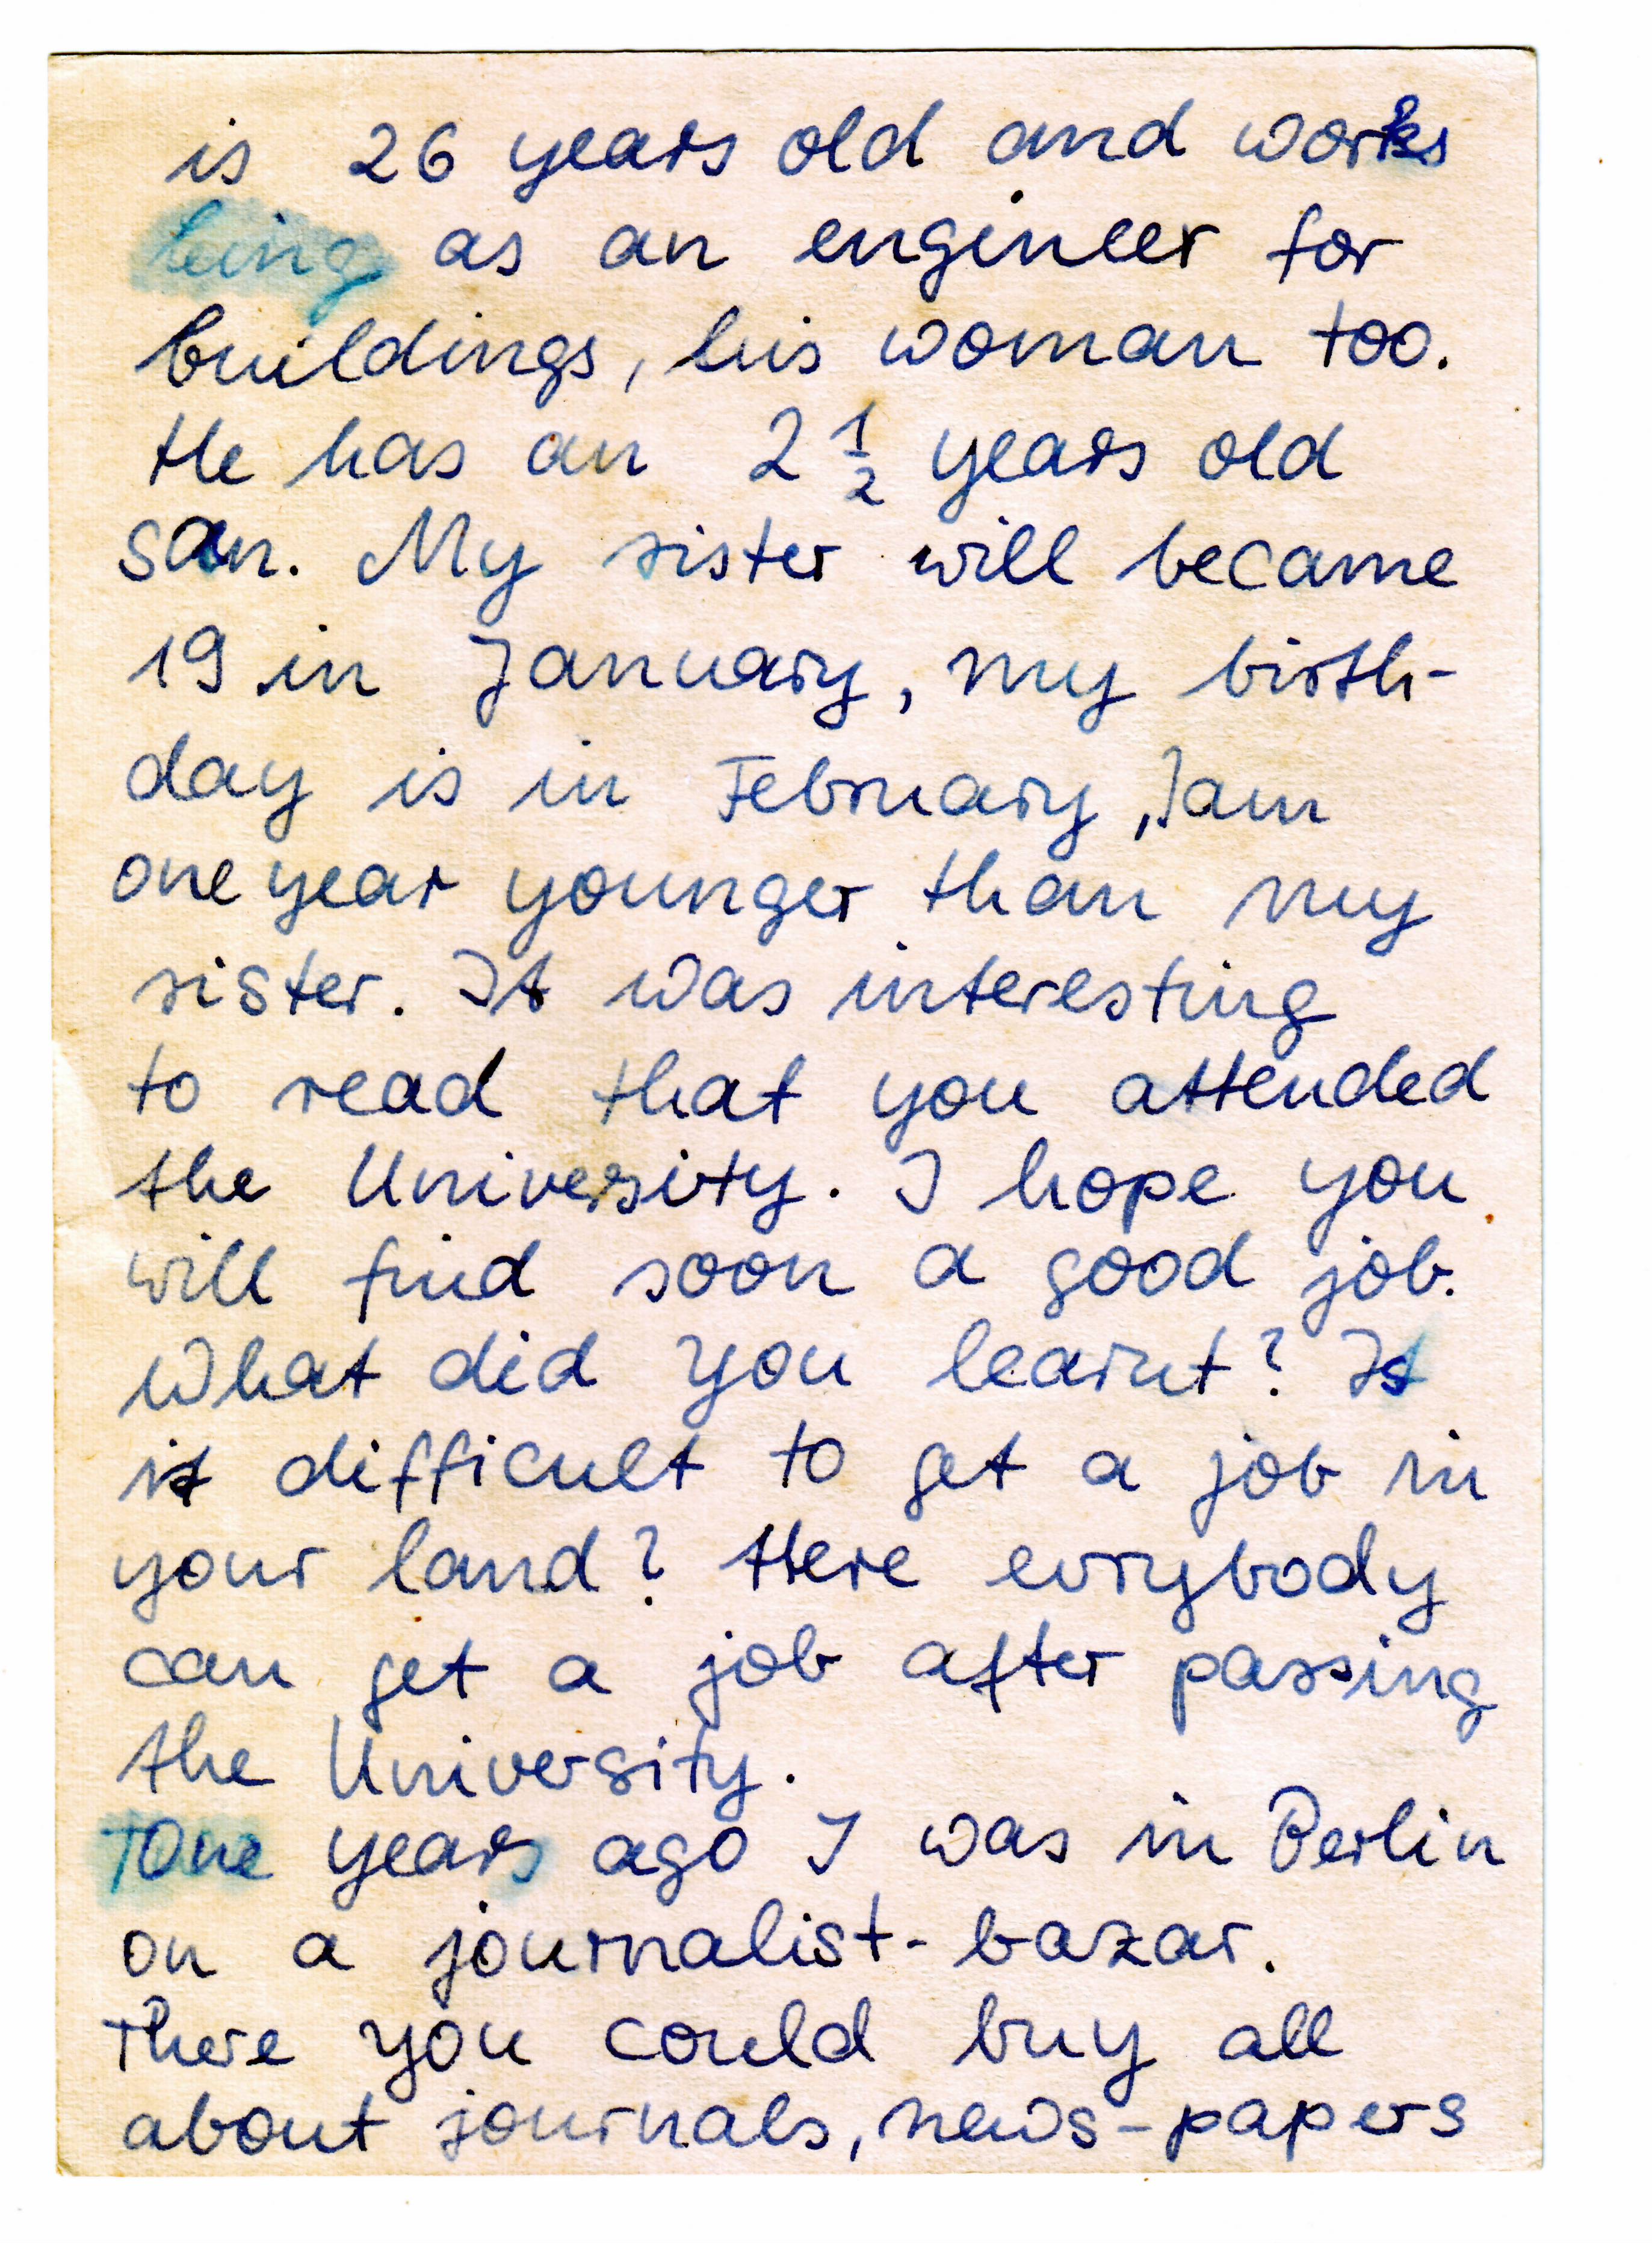 is 26 years old and works
being as an engineer for
buildings, his woman too.
He has an 2 1/2 years old
son. My sister will became
19 in January, my birth-
day is in February, I am
one year younger than my
sister. It was interesting
to read that you attended
the University. I hope you
will find soon a good job.
What did you learnt? Is
it difficult to get a job in
your land? Here evrybody
can get a job after passing
the University.
years ago I was in Berlin
on a journalist-bazar.
There you could buy all
about journals, news-papers